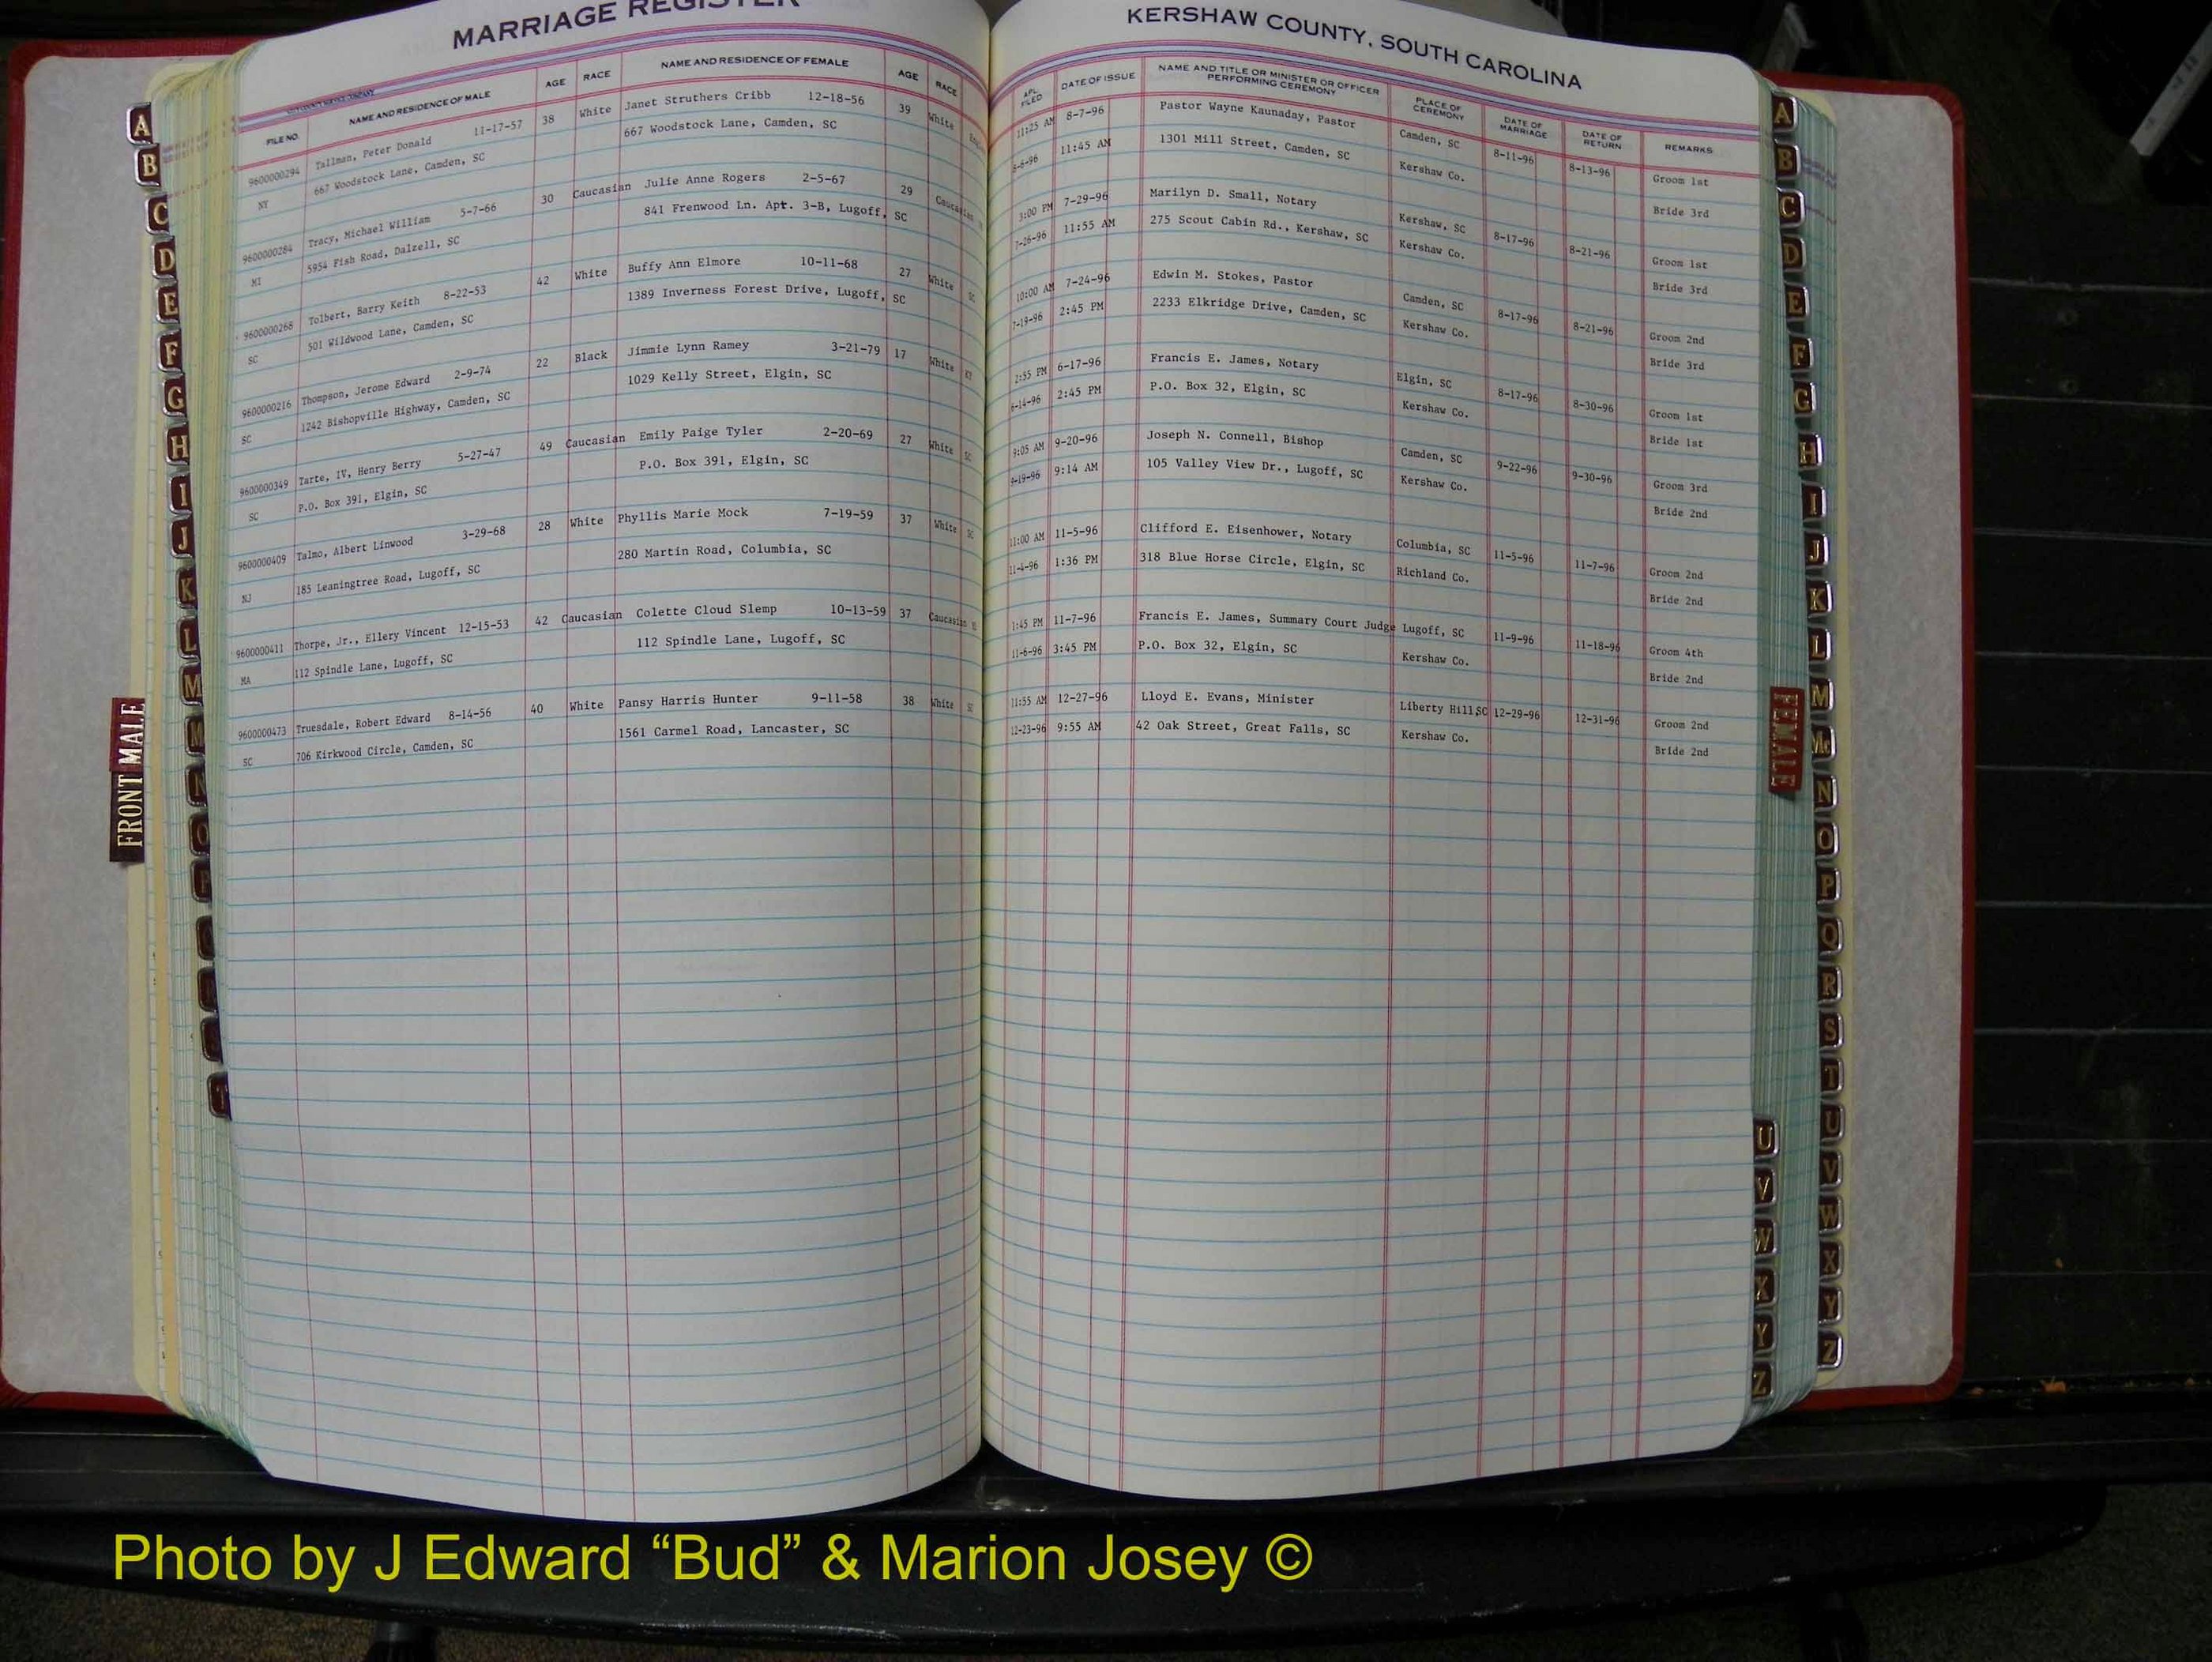 MARRIAGE REGISTER
FILE NO. NAME AND RESIDENCE OF MALE AGE RACE NAME AND RESIDENCE OF FEMALE AGE RACE
9600000294 Tallman, Peter Donald 11-17-57 38 White Janet Struthers Cribb 12-18-56 39 White
NY 667 Woodstock Lane, Camden, SC 667 Woodstock Lane, Camden, SC
9600000284 Tracy, Michael William 5-7-66 30 Caucasian Julie Anne Rogers 2-5-67 29 Caucasian
MI 5954 Fish Road, Dalzell, SC 841 Frenwood Ln. Apt. 3-B, Lugoff, SC
9600000268 Tolbert, Barry Keith 8-22-53 42 White Buffy Ann Elmore 10-11-68 27 White SC
SC 501 Wildwood Lane, Camden, SC 1389 Inverness Forest Drive, Lugoff, SC
9600000216 Thompson, Jerome Edward 2-9-74 22 Black Jimmie Lynn Ramey 3-21-79 17 White
SC 1242 Bishopville Highway, Camden, SC 1029 Kelly Street, Elgin, SC
9600000349 Tarte, IV, Henry Berry 5-27-47 49 Caucasian Emily Paige Tyler 2-20-69 27 White SC
SC P.O. Box 391, Elgin, SC P.O. Box 391, Elgin, SC
9600000409 Talmo, Albert Linwood 3-29-68 28 White Phyllis Marie Mock 7-19-59 37 White SC
NJ 185 Leaningtree Road, Lugoff, SC 280 Martin Road, Columbia, SC
9600000411 Thorpe, Jr., Ellery Vincent 12-15-53 42 Caucasian Colette Cloud Slemp 10-13-59 37 Caucasian
MA 112 Spindle Lane, Lugoff, SC 112 Spindle Lane, Lugoff, SC
9600000473 Truesdale, Robert Edward 8-14-56 40 White Pansy Harris Hunter 9-11-58 38 White SC
SC 706 Kirkwood Circle, Camden, SC 1561 Carmel Road, Lancaster, SC
KERSHAW COUNTY, SOUTH CAROLINA
APL. FILED DATE OF ISSUE NAME AND TITLE OR MINISTER OR OFFICER PERFORMING CEREMONY PLACE OF CEREMONY DATE OF MARRIAGE DATE OF RETURN REMARKS
11:25 AM 8-7-96 Pastor Wayne Kaunaday, Pastor Camden, SC 8-11-96 8-13-96 Groom 1st
11:45 AM 1301 Mill Street, Camden, SC Kershaw Co. Bride 3rd
3:00 PM 7-29-96 Marilyn D. Small, Notary Kershaw, SC 8-17-96 8-21-96 Groom 1st
7-26-96 11:55 AM 275 Scout Cabin Rd., Kershaw, SC Kershaw Co. Bride 3rd
10:00 AM 7-24-96 Edwin M. Stokes, Pastor Camden, SC 8-17-96 8-21-96 Groom 2nd
7-19-96 2:45 PM 2233 Elkridge Drive, Camden, SC Kershaw Co. Bride 3rd
2:55 PM 6-17-96 Francis E. James, Notary Elgin, SC 8-17-96 8-30-96 Groom 1st
6-14-96 2:45 PM P.O. Box 32, Elgin, SC Kershaw Co. Bride 1st
9:05 AM 9-20-96 Joseph N. Connell, Bishop Camden, SC 9-22-96 9-30-96 Groom 3rd
9-19-96 9:14 AM 105 Valley View Dr., Lugoff, SC Kershaw Co. Bride 2nd
11:00 AM 11-5-96 Clifford E. Eisenhower, Notary Columbia, SC 11-5-96 11-7-96 Groom 2nd
11-4-96 1:36 PM 318 Blue Horse Circle, Elgin, SC Richland Co. Bride 2nd
1:45 PM 11-7-96 Francis E. James, Summary Court Judge Lugoff, SC 11-9-96 11-18-96 Groom 4th
11-6-96 3:45 PM P.O. Box 32, Elgin, SC Kershaw Co. Bride 2nd
11:55 AM 12-27-96 Lloyd E. Evans, Minister Liberty Hill,SC 12-29-96 12-31-96 Groom 2nd
12-23-96 9:55 AM 42 Oak Street, Great Falls, SC Kershaw Co. Bride 2nd
A
B
C
D
E
F
G
H
I
J
K
L
M
N
O
P
T
FRONT MALE
A
B
C
D
E
F
G
H
I
J
K
L
M
Mc
N
O
P
Q
R
S
T
U
V
W
X
Y
Z
FEMALE
U
V
W
X
Y
Z
Photo by J Edward “Bud” & Marion Josey ©